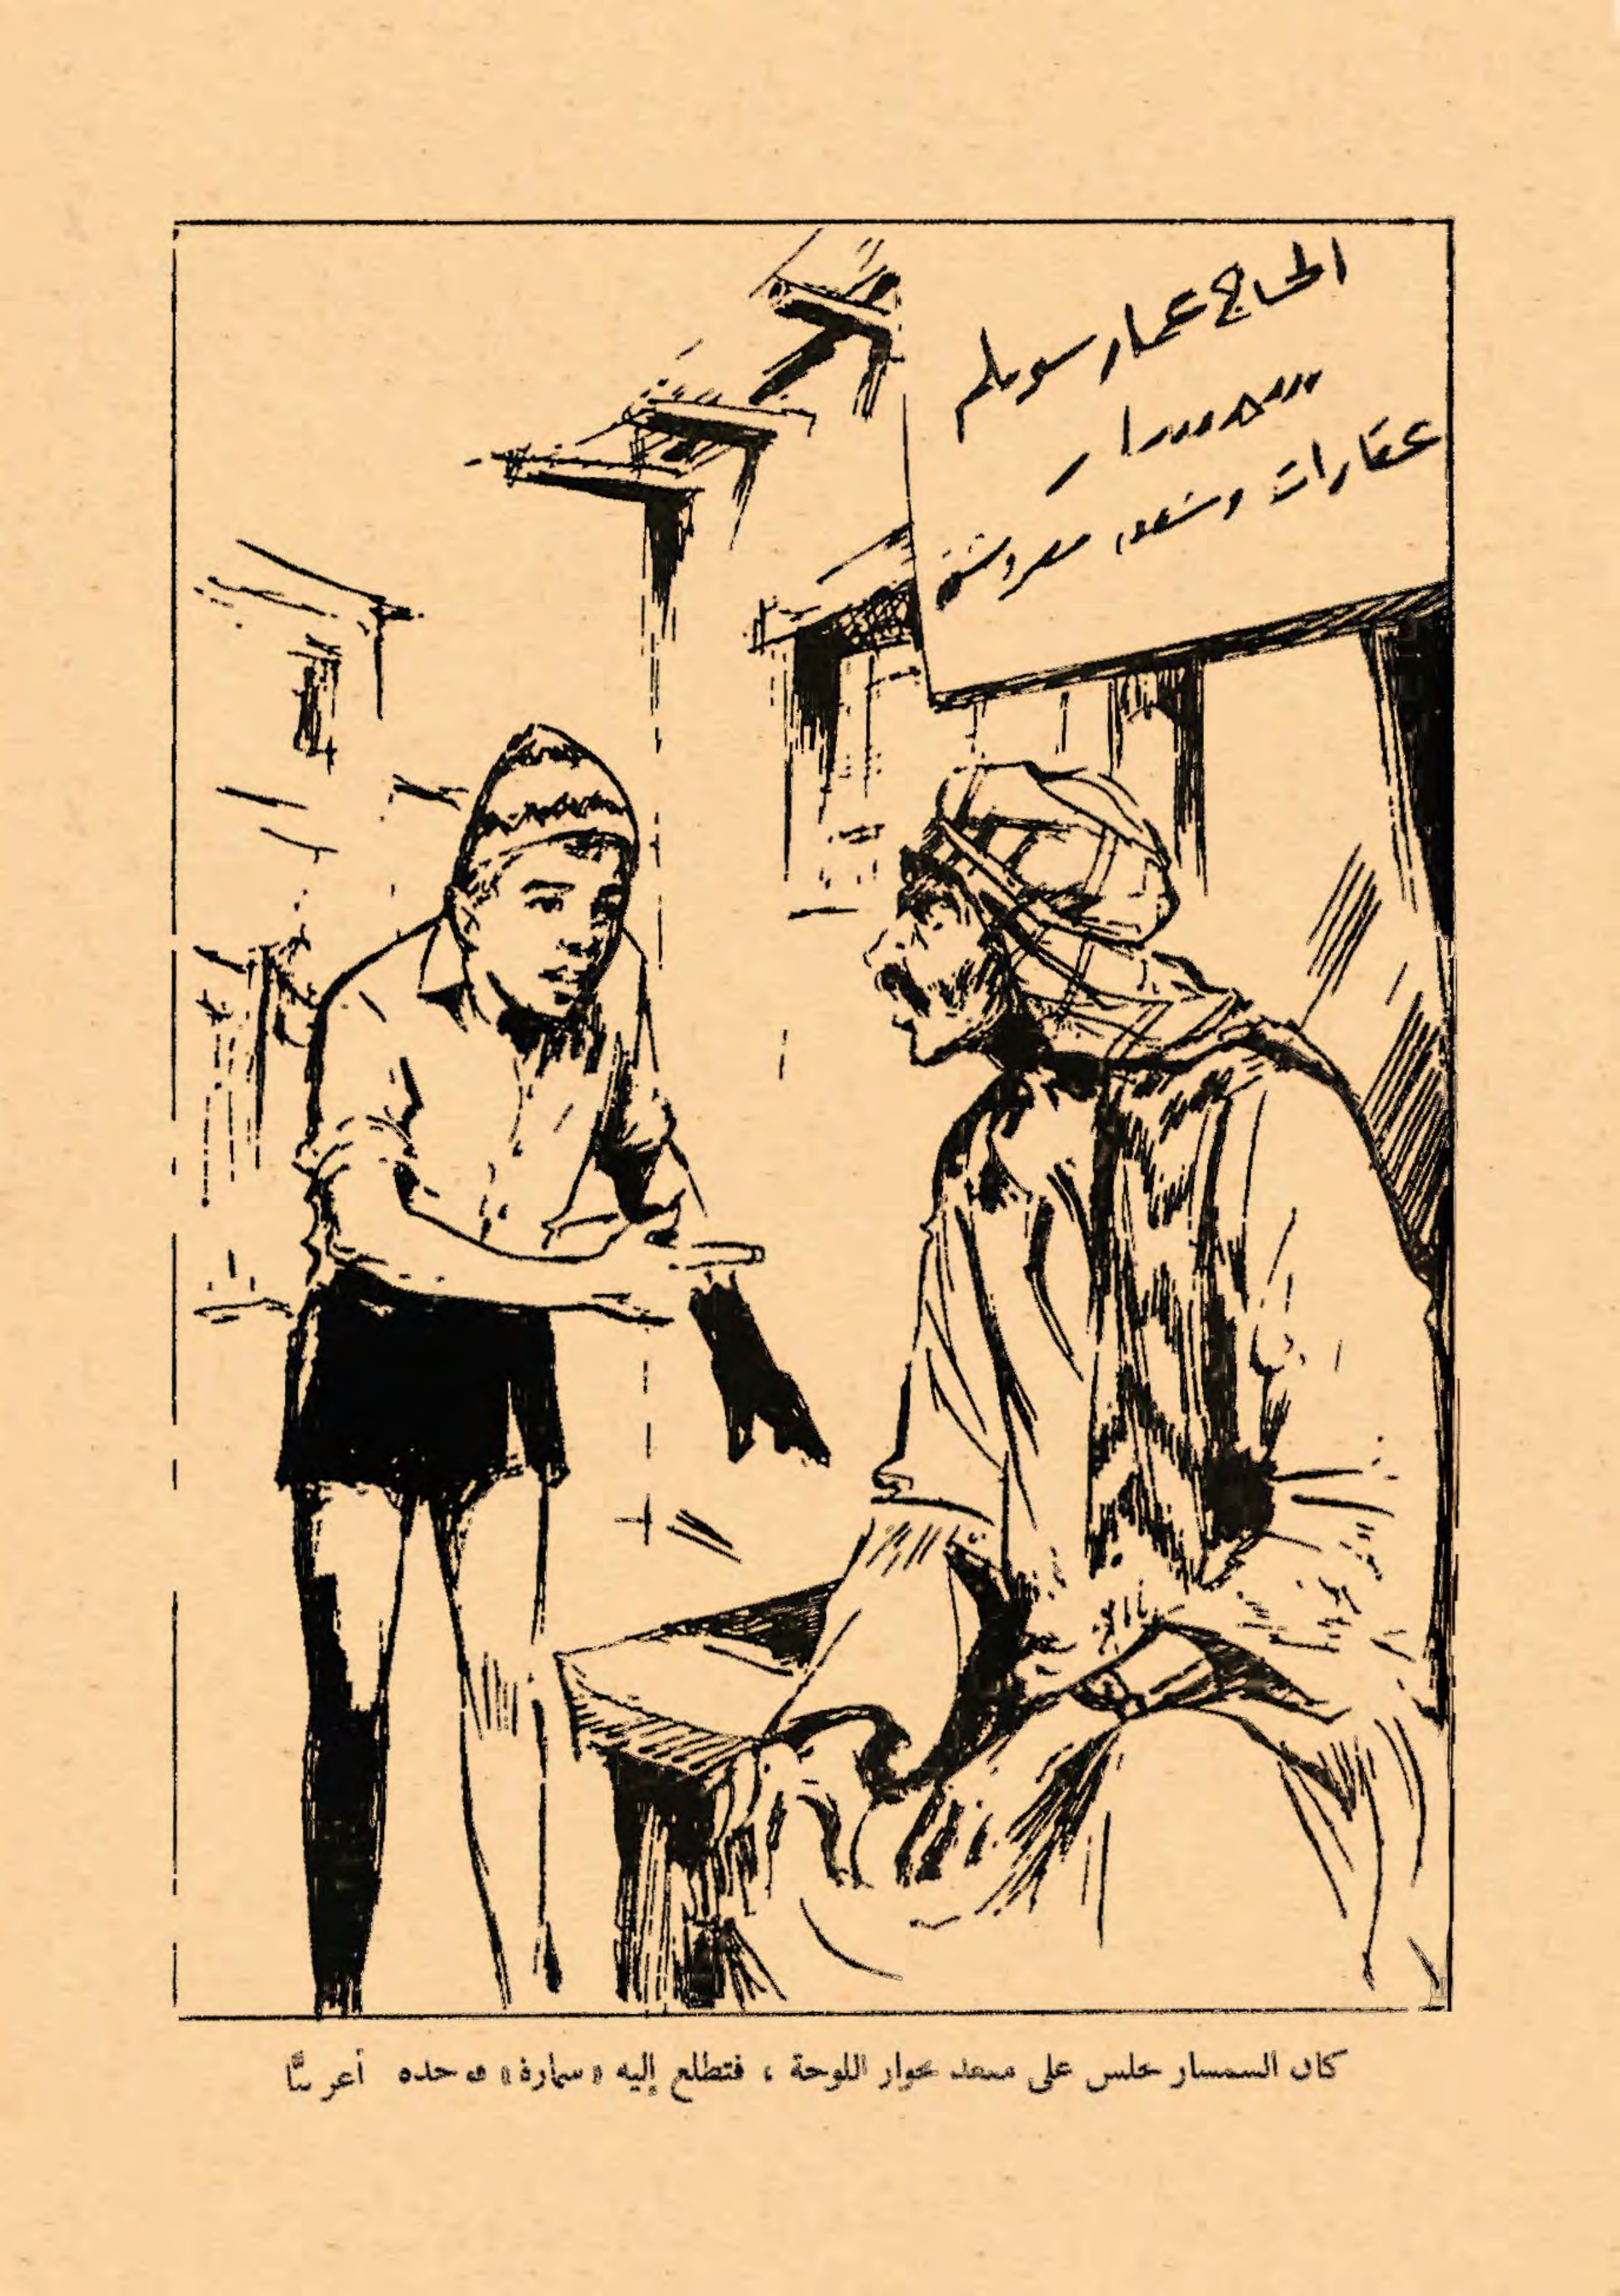 الحاج عمار سويلم
سمسار
عقارات وشقق مفروشة
كان السمسار يجلس على مقعد بجوار اللوحة ، فتطلع إليه «سمارة» فوجده أعرابيًّا